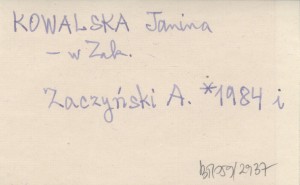 KOWALSKA Janina
– w Zak.
Zaczyński A. *1984 i